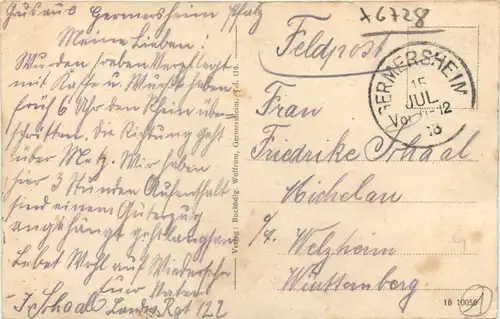 Gruss aus Germersheim Pfalz
Meine Lieben!
Wurden soeben Verpflegt
mit Kaffe u. Wurst haben
früh 6 Uhr den Rhein über-
schritten. Die Richtung geht
über Metz. Wir haben
hier 3 Stunden Aufenthalt
sind einem Güterzug
angehängt geht langsam
Lebet Wohl auf Wiedersehn
Euer Vater
J Schaal Landw. Rgt 122
Verlag: Buchhdlg. Wolfrum, Germersheim, Tel. 110.
+6728
Feldpost
GERMERSHEIM
15
JUL.
Vor. 11-12
Frau
Friedrike Schaal
Michelau
Welzheim
Württemberg
16 10056